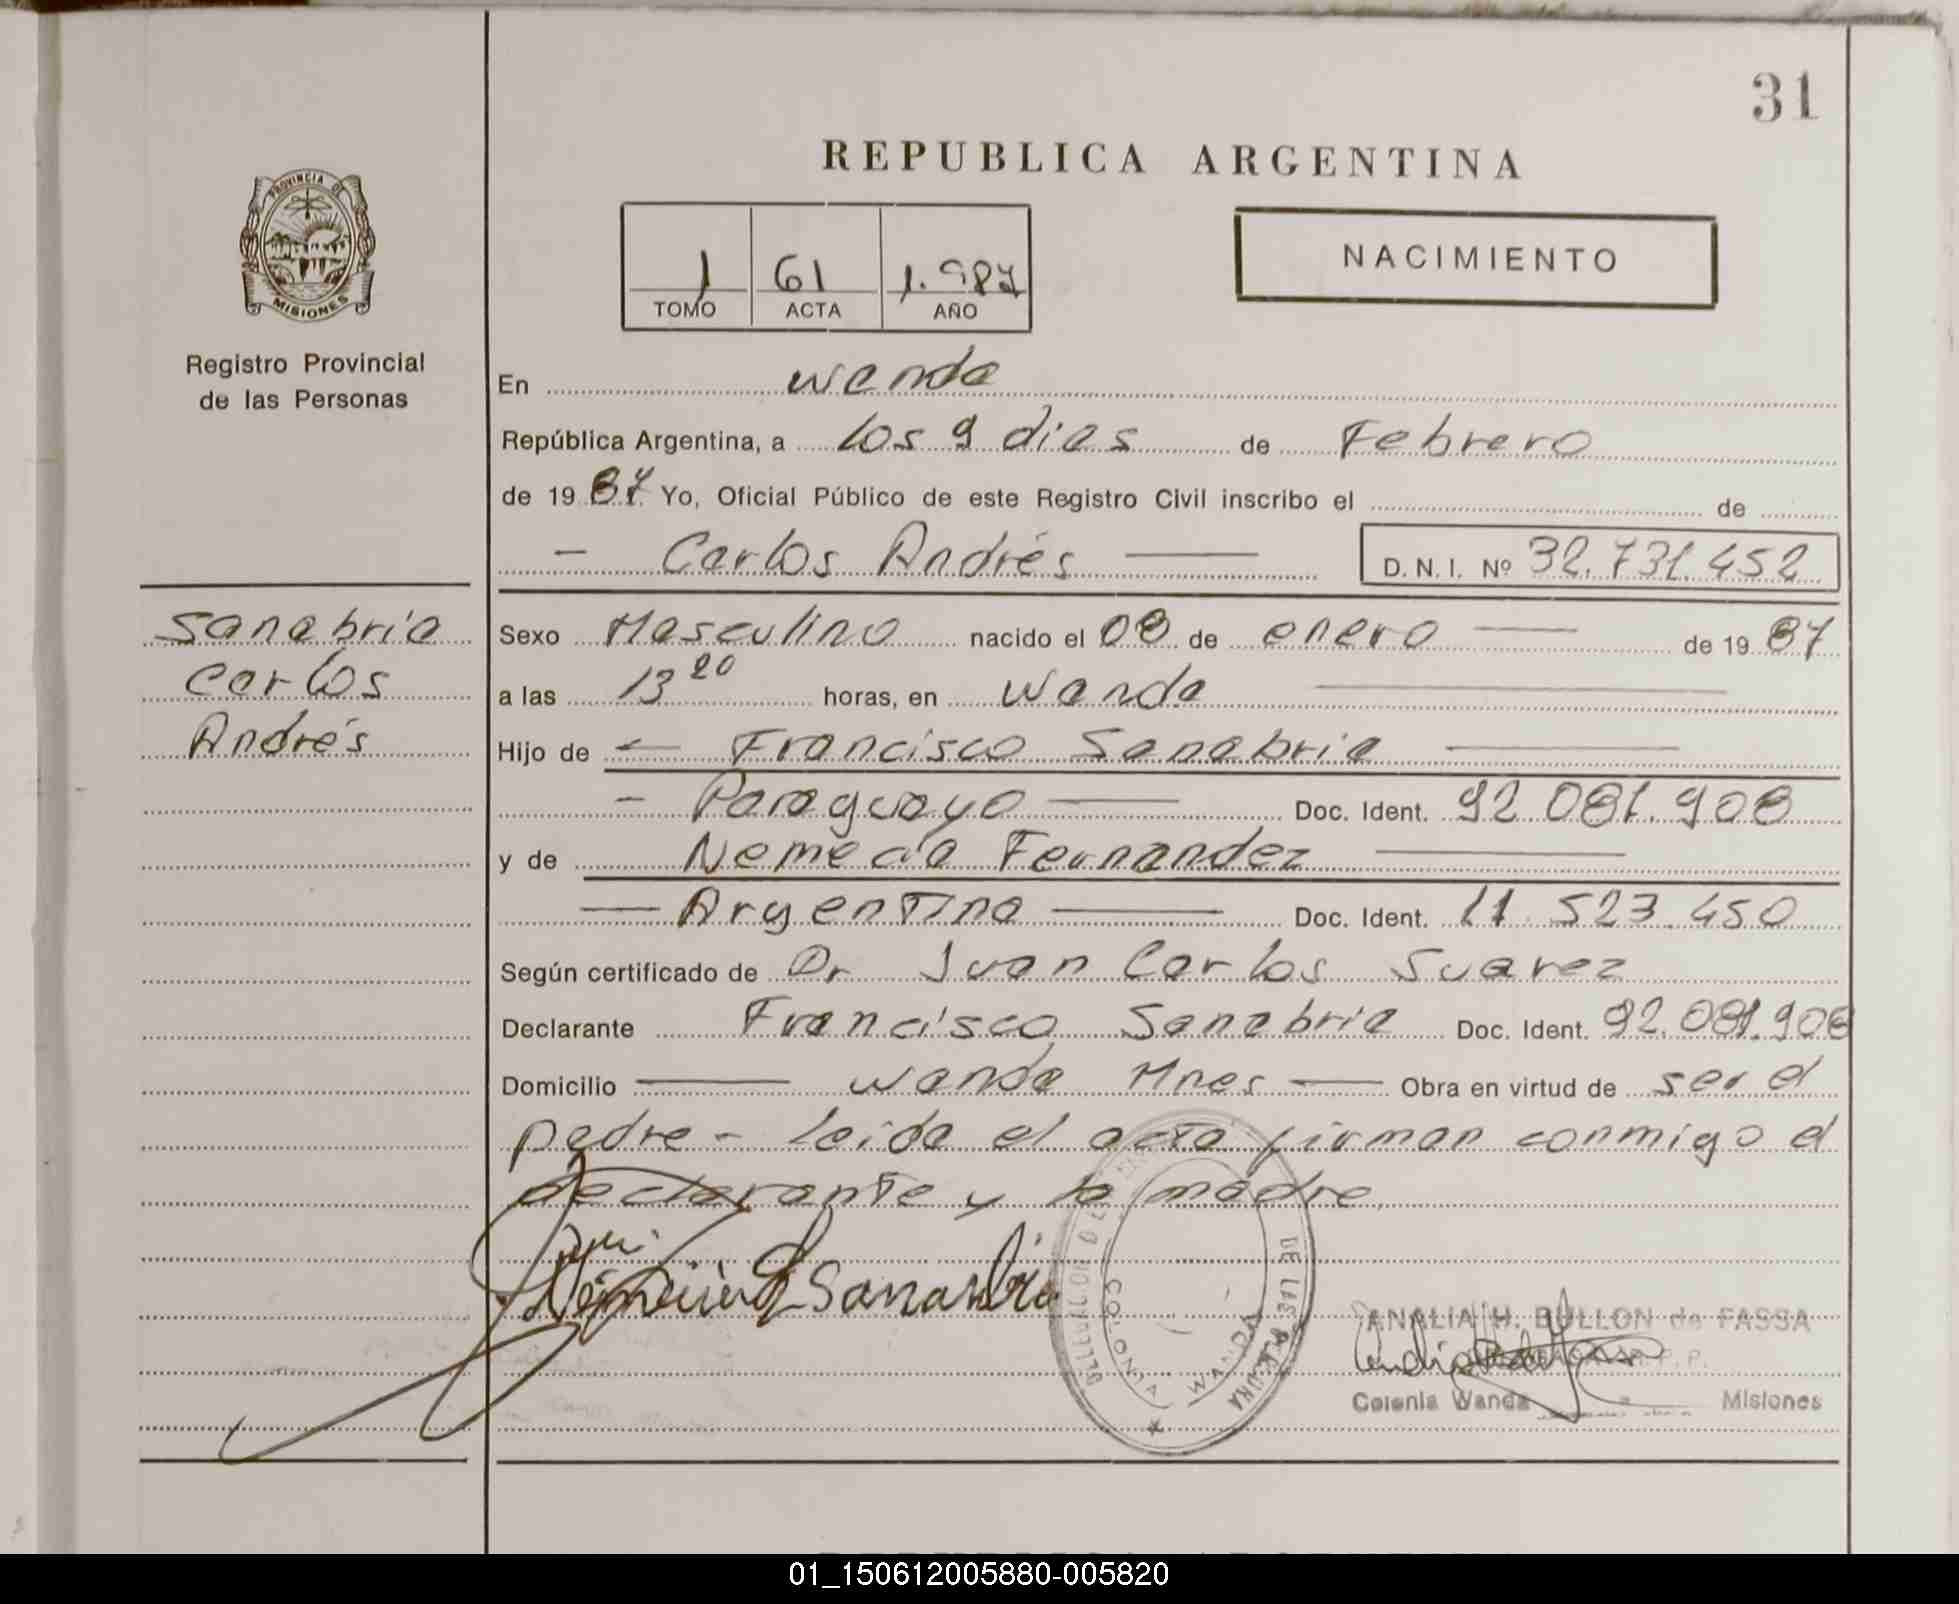 31
REPUBLICA ARGENTINA
PROVINCIA DE
MISIONES
Registro Provincial
de las Personas
1 61 1.987
TOMO ACTA AÑO
NACIMIENTO
En Wanda
República Argentina, a los 9 dias de Febrero
de 19 87 Yo, Oficial Público de este Registro Civil inscribo el de
- Carlos Andrés — D. N. I. Nº 32.731.452
Sanabria
Carlos
Andrés
Sexo Masculino nacido el 08 de enero — de 19 87
a las 13 20 horas, en Wanda —
Hijo de — Francisco Sanabria —
- Paraguayo — Doc. Ident. 92.081.908
y de Nemecia Fernandez —
— Argentina — Doc. Ident. 11.523.450
Según certificado de Dr Juan Carlos Suarez
Declarante Francisco Sanabria Doc. Ident. 92.081.908
Domicilio — Wanda Mnes — Obra en virtud de ser el
padre - leida el acta firman conmigo el
declarante y la madre
Sanabria
DE LAS
WANDA
ANALIA H. BULLON de FASSA
R. P. P.
Colonia Wanda Misiones
01_150612005880-005820